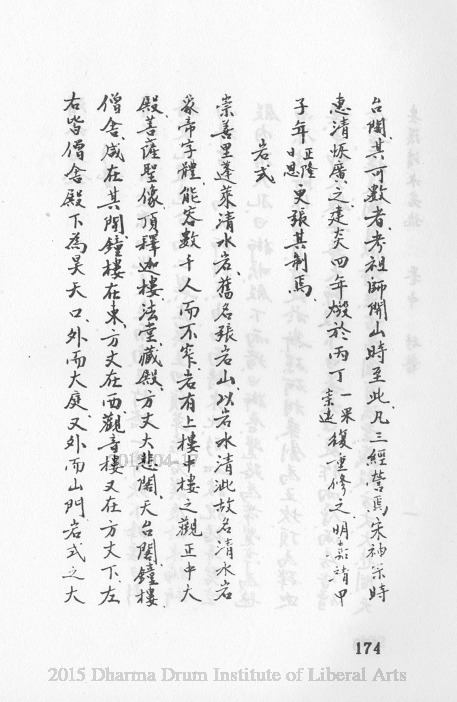 台閣其可數者考祖師開山時至此凡三經營焉宋神宗時
惠清恢廓之建炎四年燬於丙丁一果崇遠復重修之明嘉靖甲
子年正隆日恩更張其制焉
岩式
崇善里蓬萊清水岩舊名張岩山以岩水清泚故名清水岩
篆帝字體能容數千人而不窄岩有上樓中樓之觀正中大
殿菩薩聖像頂釋迦樓法堂藏殿方丈大悲閣天台閣鐘樓
僧舍咸在其閣鐘樓在東方丈在西觀音樓又在方丈下左
右皆僧舍殿下為昊天口外而大庭又外而山門岩式之大
174
2015 Dharma Drum Institute of Liberal Arts